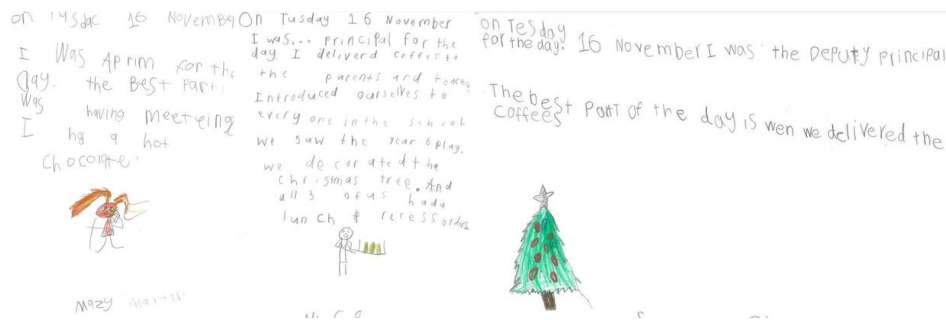 on 16 November
I was Aprim for the
Day. the Best Part
was having meeteing
I ha a hot
chocolate.
Mazy
On Tusday 16 November
I was... principal for the
day. I deliverd coffes to
the parents and
Introduced ourselves to
every one in the school
we saw the year 6 play.
we decorated the
christmas tree. And
all 3 of us had a
lunch & recess orders
on Tesday
for the day. 16 November I was the Deputy principal
The best part of the day is wen we delivered the
coffees